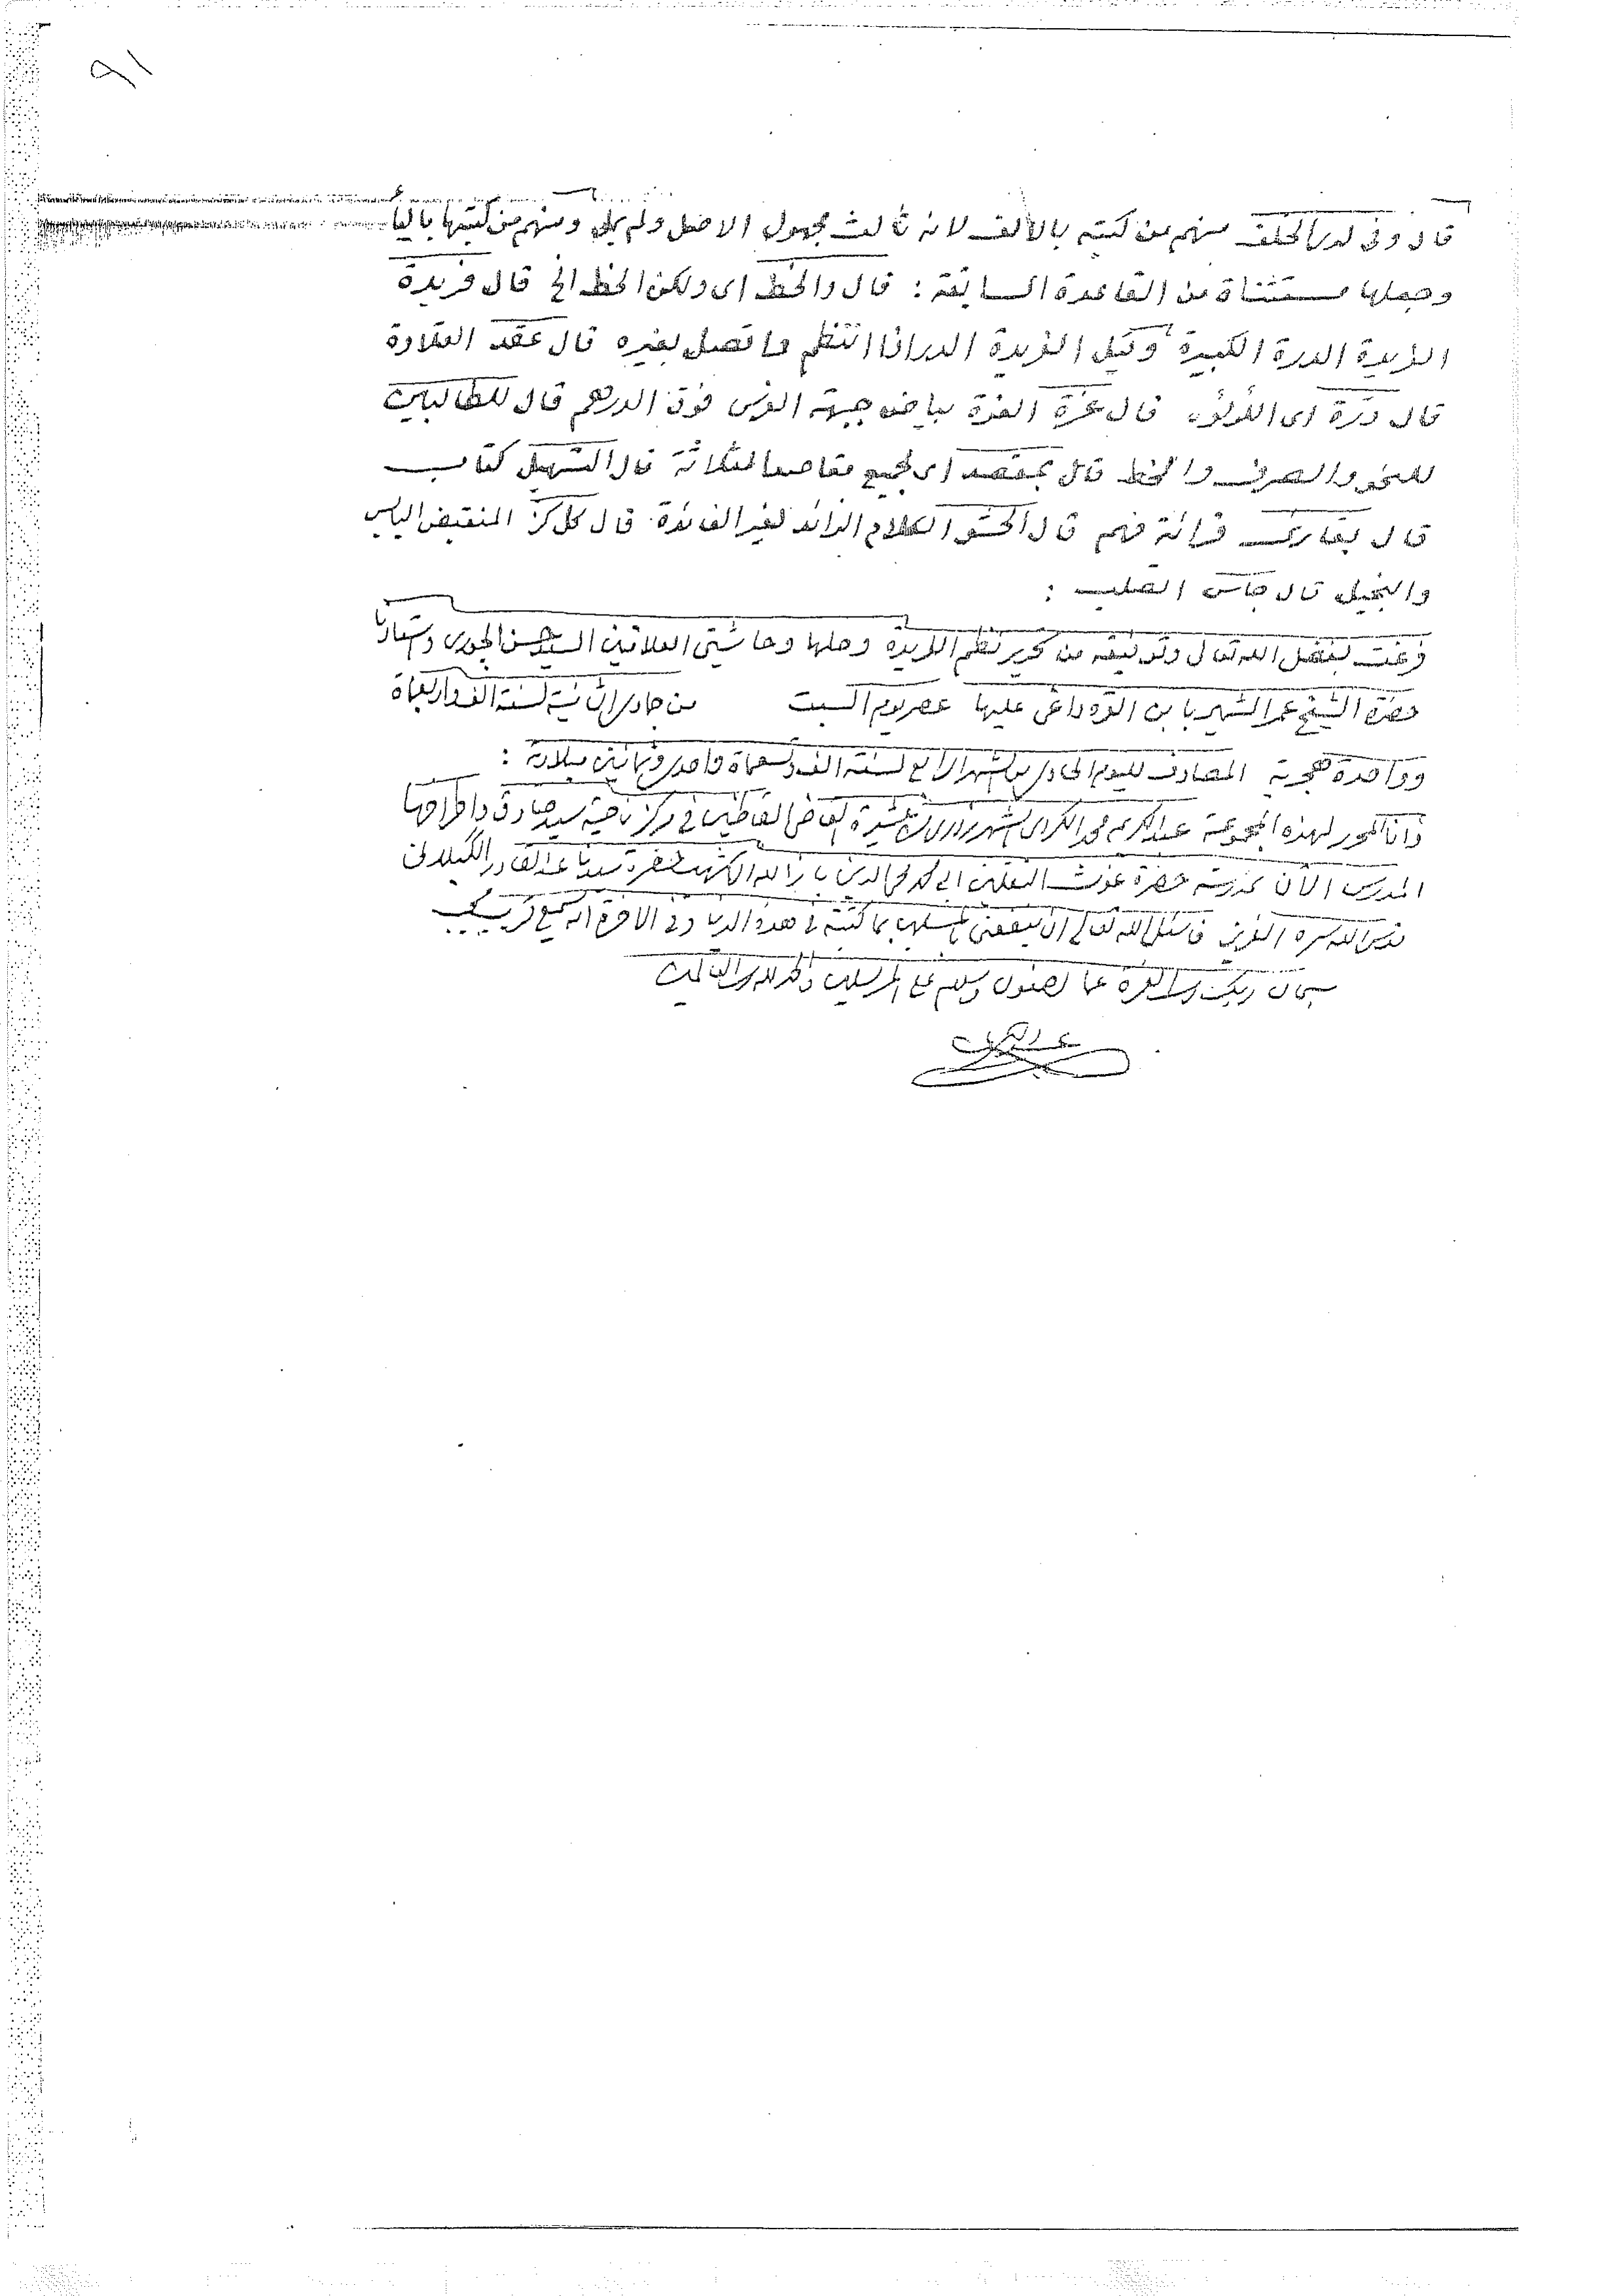 ٩١
قال وفي لدى الخلف منهم من كتبه بالألف لانه ثالث مجهول الاصل ولم يمل ومنهم من كتبها باليأ
وجعلها مستثناة من القاعدة السابقة : قال والخط اى ولكن الخط الخ قال فريدة
الفريدة الدرة الكبيرة وقيل الفريدة الدر اذا انتظم واتصل بغيره قال عقد القلادة
قال درة اى اللؤلؤ قال غرة الغرة بياض جبهة الفرس فوق الدرهم قال للطالبين
للنحو والصرف والخط قال بمقصد اى لجميع مقاصدها الثلاثة قال التسهيل كتاب
قال بقارئ قرائة فهم قال الحشو الكلام الزائد لغير الفائدة قال كل كز المنقبض اليابس
والبخيل قال جاس الصلب :
فرغت بفضل الله تعالى وتوفيقه من تحرير نظم الفريدة وحلها وحاشيتى العلامتين السيد حسن الجورى
حضرة الشيخ عمر الشهير بابن القرهداغى عليها عصر يوم السبت من جمادى الثانية لسنة الف واربعمأة
وواحدة هجرية المصادف لليوم الحادى من الشهر الرابع لسنة الف وتسعمأة واحدى وثمانين ميلادية :
وانا المحرر لهذه المجموعة عبدالكريم محمد الكردى الشهرزورى من عشيرة القاضى القاطنين في مركز ناحية سيد صادق واطرافها
المدرس الآن بمدرسة حضرة غوث الثقلين ابى محمد محى الدين باز الله الاشهب حضرة سيدنا عبدالقادر الگيلانى
قدس الله سره العزيز فاسئل الله تعالى ان ينفعنى والمسلمين بما كتبته في هذه الدنيا وفى الاخرة انه سميع قريب مجيب
سبحان ربك رب العزة عما يصفون وسلام على المرسلين والحمد لله رب العالمين
عبدالكريم